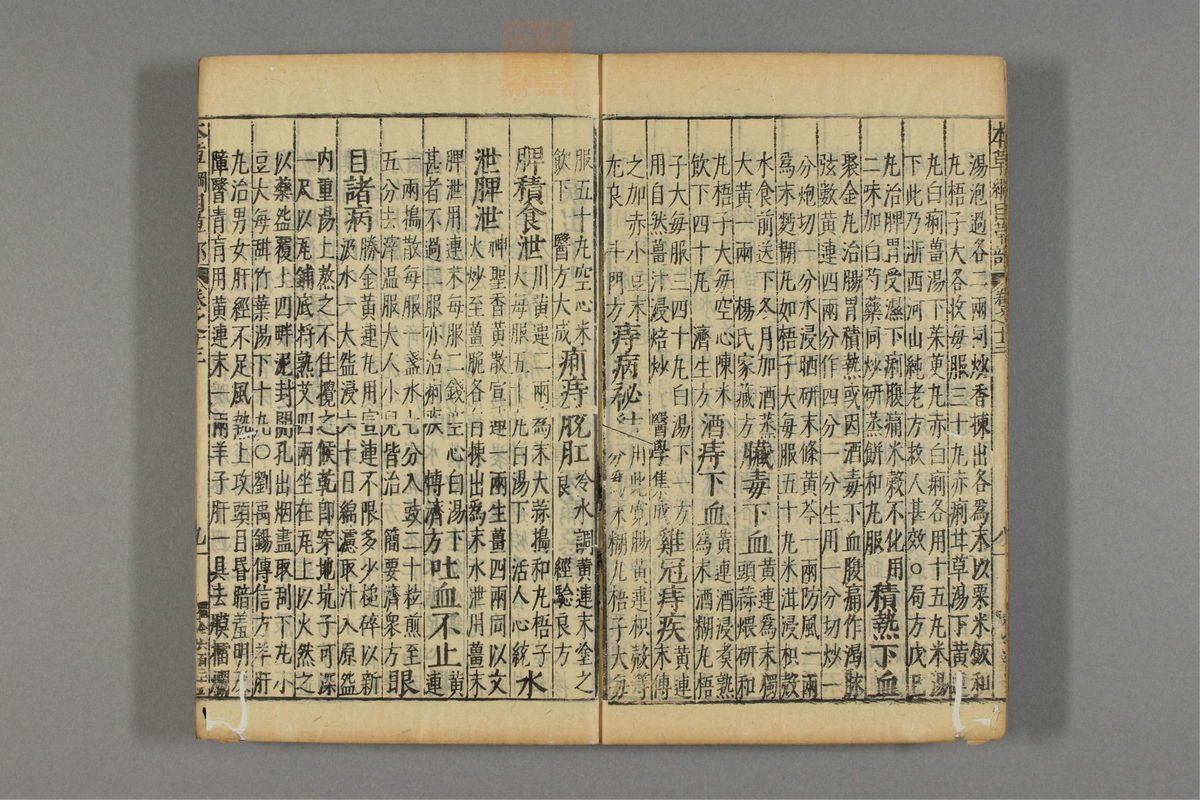 本草綱目草部 卷之十三 八
湯泡過各二兩同炒香揀出各爲末以粟米飯和
丸梧子大各收每服三十丸赤痢甘草湯下黃連
丸白痢薑湯下茱萸丸赤白痢各用十五丸米湯
下此乃浙西河山純老方救人甚效○局方戊己
丸治脾胃受濕下痢腹痛米穀不化用
二味加白芍藥同炒研蒸餅和丸服
積熱下血
聚金丸治腸胃積熱或因酒毒下血腹痛作渴脉
弦數黃連四兩分作四分一分生用一分切炒一
分炮切一分水浸晒研末條黃芩一兩防風一兩
爲末麪糊丸如梧子大每服五十丸米泔浸枳殼
水食前送下冬月加酒蒸
大黃一兩 楊氏家藏方
臟毒下血
黃連爲末獨
頭蒜煨研和
丸梧子大每空心陳米
飲下四十丸 濟生方
酒痔下血
黃連酒浸煮熟
爲末酒糊丸梧
子大每服三四十丸白湯下一方
用自然薑汁浸焙炒 醫學集成
雞冠痔疾
黃連
末傅
之加赤小豆末
尤良 斗門方
痔病秘結
用此寬腸黃連枳殼等
分爲末糊丸梧子大每
服五十丸空心米
飲下 醫方大成
痢痔脫肛
冷水調黃連末塗之
良 經驗良方
脾積食泄
川黃連二兩爲末大蒜搗和丸梧子
大每服五十丸白湯下 活人心統
水
泄脾泄
神聖香黃散宣連一兩生薑四兩同以文
火炒至薑脆各自揀出爲末水泄用薑末
脾泄用連末每服二錢空心白湯下
甚者不過二服亦治痢疾 博濟方
吐血不止
黃
連
一兩搗散每服一錢水七分入豉二十粒煎至
五分去滓溫服大人小兒皆治 簡要濟衆方
眼
目諸病
勝金黃連丸用宣連不限多少槌碎以新
汲水一大盌浸六十日綿濾取汁入原盌
內重湯上熬之不住攪之候乾卽穿地坑子可深
一尺以瓦鋪底將熟艾四兩坐在瓦上以火然之
以藥盌覆上四畔泥封開孔出烟盡取刮下丸小
豆大每甜竹葉湯下十丸○劉禹錫傳信方羊肝
丸治男女肝經不足風熱上攻頭目昏暗羞明及
障瞖青盲用黃連末一兩羊子肝一具去膜擂爛
本草綱目草部 卷之十三 九